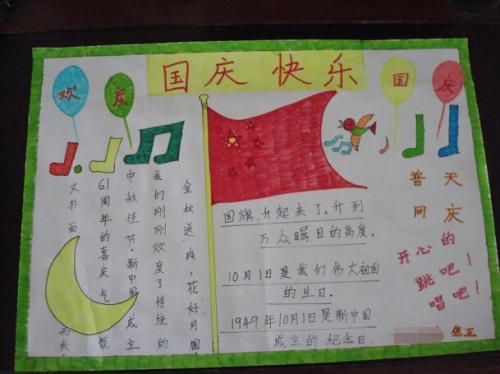 国庆快乐
欢度国庆
金秋送爽,花好月圆
我们刚刚欢度了传统的
中秋佳节,新中国成立
61周年的喜庆气氛
又扑面而来
国旗升起来了,升到
万众瞩目的高度。
10月1日是我们伟大祖国
的生日。
1949年10月1日是新中国
成立的纪念日.
普天
同庆
开心的
跳吧!
唱吧!